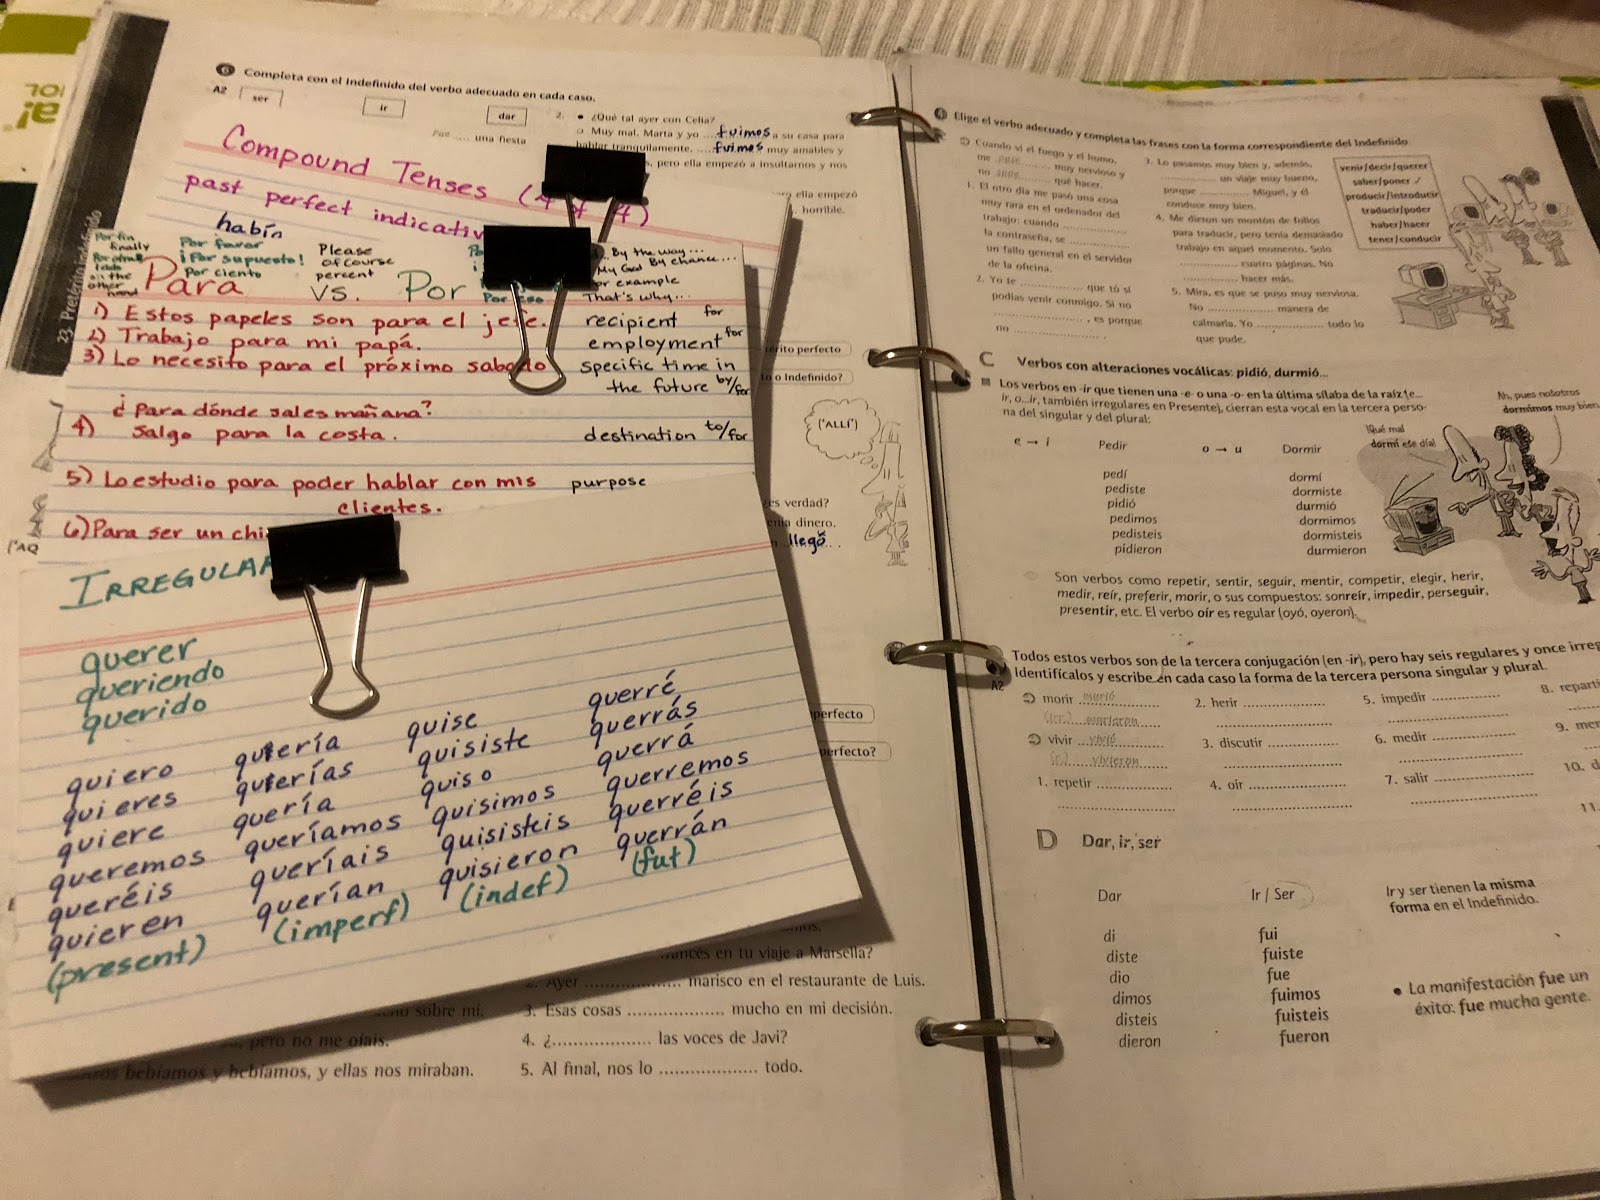 6 Completa con el Indefinido del verbo adecuado en cada caso.
A2 ser ir dar
Fue .... una fiesta
2. • ¿Qué tal ayer con Celia?
o Muy mal. Marta y yo ....fuimos a su casa para
hablar tranquilamente. ....fuimos muy amables y
, pero ella empezó a insultarnos y nos
ella empezó
horrible.
Compound Tenses (4 of 4)
past perfect indicativ
había
Por fin
finally
on the
other
hand
Por favor
¡Por supuesto!
Por ciento
Please
of course
percent
By the way...
My God By chance...
or example
That's why...
Para vs. Por
1) Estos papeles son para el jefe. recipient for
2) Trabajo para mi papá. employment for
3) Lo necesito para el próximo sabado specific time in
the future by/for
¿Para dónde sales mañana?
4) Salgo para la costa. destination to/for
5) Lo estudio para poder hablar con mis purpose
clientes.
6) Para ser un chi
IRREGULAR
querer
queriendo
querido
quiero quería quise querré
quieres querías quisiste querrás
quiere quería quiso querrá
queremos queríamos quisimos querremos
queréis queríais quisisteis querréis
quieren querían quisieron querrán
(present) (imperf) (indef) (fut)
23 Pretérito Indefinido
érito perfecto
o Indefinido?
('ALLÍ')
es verdad?
enía dinero.
llegó
perfecto
perfecto?
PAQ
ancés en tu viaje a Marsella?
2. Ayer .................... marisco en el restaurante de Luis.
sobre mí.
3. Esas cosas .................... mucho en mi decisión.
, pero no me oíais.
4. ¿.................... las voces de Javi?
bebíamos y bebíamos, y ellas nos miraban.
5. Al final, nos lo .................... todo.
Elige el verbo adecuado y completa las frases con la forma correspondiente del Indefinido.
Cuando vi el fuego y el humo,
me ............ muy nervioso y
no ............ qué hacer.
1. El otro día me pasó una cosa
muy rara en el ordenador del
trabajo: cuando ....................
la contraseña, se ....................
un fallo general en el servidor
de la oficina.
2. Yo te .................... que tú sí
podías venir conmigo. Si no
...................., es porque
no .................... .
3. Lo pasamos muy bien y, además,
.................... un viaje muy bueno,
porque .................... Miguel, y él
conduce muy bien.
4. Me dieron un montón de folios
para traducir, pero tenía demasiado
trabajo en aquel momento. Solo
.................... cuatro páginas. No
.................... hacer más.
5. Mira, es que se puso muy nerviosa.
No .................... manera de
calmarla. Yo .................... todo lo
que pude.
venir/decir/querer
saber/poner ✓
producir/introducir
traducir/poder
haber/hacer
tener/conducir
C Verbos con alteraciones vocálicas: pidió, durmió...
Los verbos en -ir que tienen una -e- o una -o- en la última sílaba de la raíz (e...
ir, o...ir, también irregulares en Presente), cierran esta vocal en la tercera perso-
na del singular y del plural:
e → i Pedir o → u Dormir
pedí dormí
pediste dormiste
pidió durmió
pedimos dormimos
pedisteis dormisteis
pidieron durmieron
¡Qué mal
dormí ese día!
Ah, pues nosotros
dormimos muy bien.
Son verbos como repetir, sentir, seguir, mentir, competir, elegir, herir,
medir, reír, preferir, morir, o sus compuestos: sonreír, impedir, perseguir,
presentir, etc. El verbo oír es regular (oyó, oyeron).
Todos estos verbos son de la tercera conjugación (en -ir), pero hay seis regulares y once irreg
A2 Identifícalos y escribe en cada caso la forma de la tercera persona singular y plural.
morir murió 2. herir ............ 5. impedir ............ 8. reparti
(irr.) murieron
vivir vivió 3. discutir ............ 6. medir ............ 9. me
(r.) vivieron
1. repetir ............ 4. oír ............ 7. salir ............ 10. d
11.
D Dar, ir, ser
Dar Ir / Ser
di fui
diste fuiste
dio fue
dimos fuimos
disteis fuisteis
dieron fueron
Ir y ser tienen la misma
forma en el Indefinido.
• La manifestación fue un
éxito: fue mucha gente.